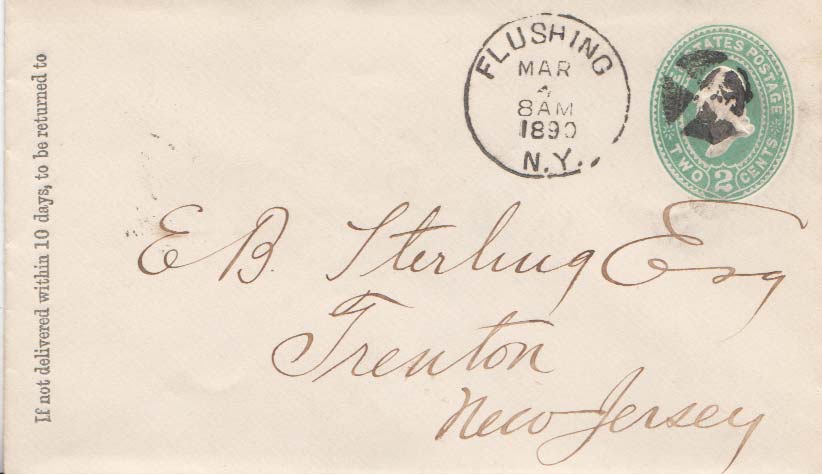 If not delivered within 10 days, to be returned to
FLUSHING
MAR
4
8AM
1890
N.Y.
STATES POSTAGE
TWO 2 CENTS
E B. Sterling Esq
Trenton
New Jersey